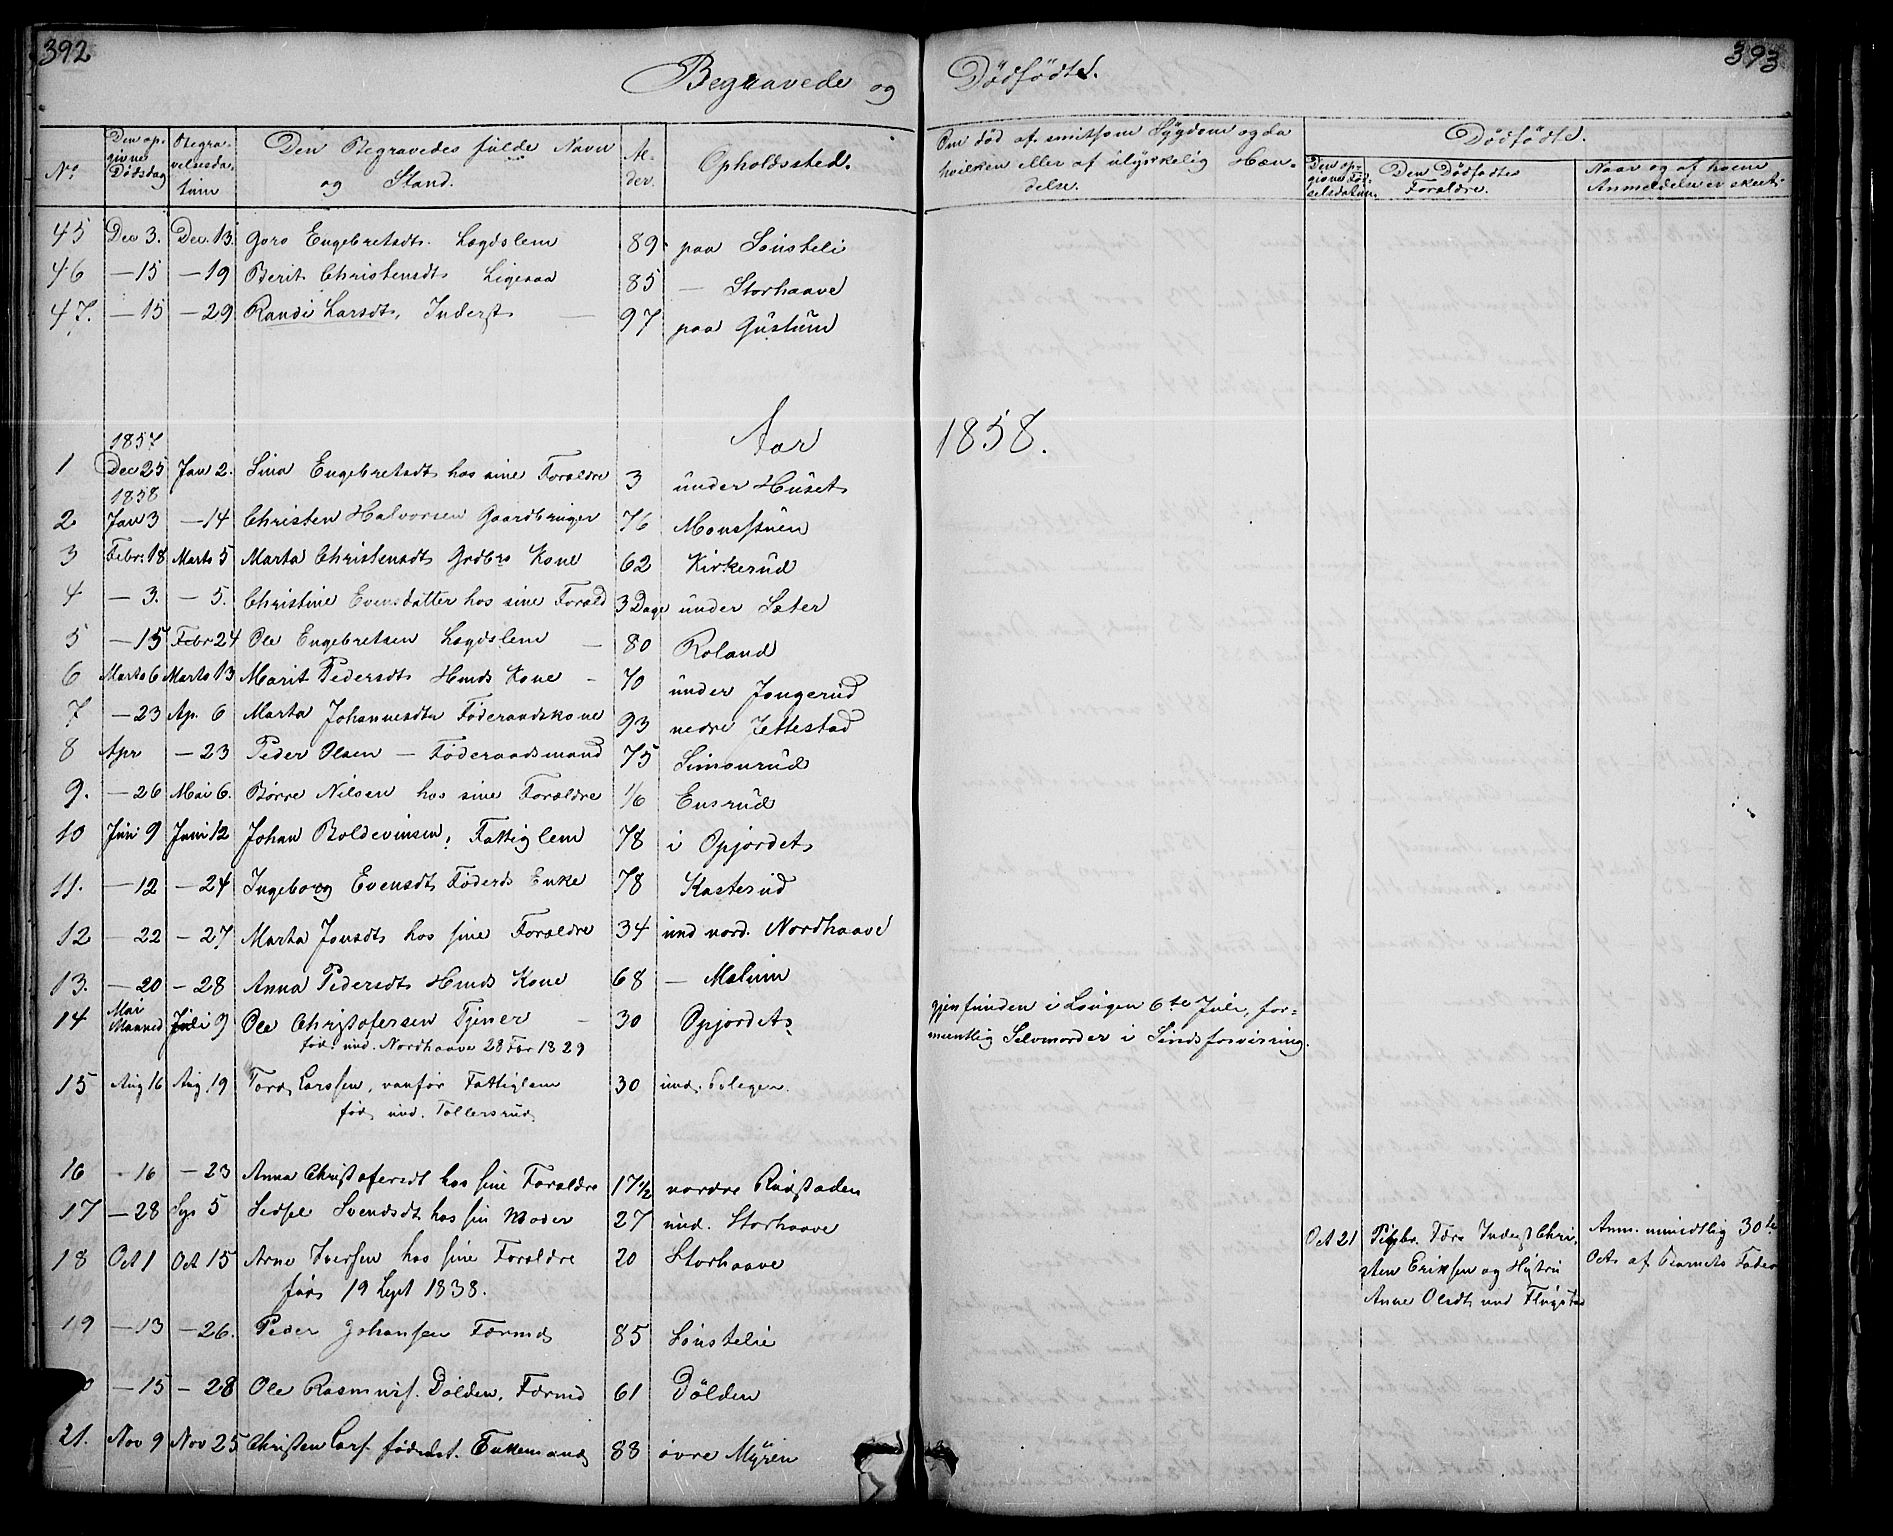 392
393
Begravede og Dödfödte.
No
Den opgivne Dødsdag
Begravelsesdatum
Den Begravedes fulde Navn og Stand.
Alder.
Opholdssted.
Om død af smitsom Sygdom og da hvilken eller af ulykkelig Hændelse.
Dödfödte.
Den opgivne Fødselsdatum.
Den Dödfödtes Forældre.
Naar og af hvem Anmeldelse er skeet.
45 Dec 3. Dec. 13. Goro Engebretsdt. Lægdslem 89 paa Sönsteli
46 — 15 — 19 Berit Christensdt Ligesaa 85 — Storhaave
47. — 15 — 29 Randi Larsdt, Inderst — 97 paa Gustum
Aar 1858.
1857
1 Dec 25 Jan 2. Sina Engebretsdt hos sine Forældre 3 under Huset
1858
2 Jan 3 — 14 Christen Halvorsen Gaardbruger 76 Monsstuen
3 Febr. 18 Marts 5 Marta Christensdt Grdbrs Kone 62 Kirkerud
4 — 3. — 5. Christine Evensdatter hos sine Foræld 3 Dage under Sæter
5 — 15 Febr 24 Ole Engebretsen Lægdslem — 80 Roland
6 Marts 6 Marts 13 Marit Pedersdt Hmds Kone — 70 under Jongerud
7 — 23 Ap. 6 Marta Johannesdtr Föderaadskone 93 nedre Jettestad
8 Apr — 23 Peder Olsen — Föderaadsmand 75 Simonrud
9. — 26 Mai 6. Börre Nilsen hos sine Forældre 1/6 Ensrud
10 Juni 9 Juni 12 Johan Boldevinsen, Fattiglem 78 i Opjordet
11. — 12 — 24 Ingeborg Evensdt Föderds Enke 78 Kasterud
12 — 22 — 27 Marta Jonsdt hos sine Forældre 34 und nord. Nordhaave
13. — 20 — 28 Anna Pedersdt Hmds Kone 68 — Melum
14 Mai Maaned Juli 9 Ole Christofersen Tjener — 30 Opjordet gjenfunden i Laugen 6te Juli, for=
föd. und. Nordhaave 28 Febr 1829 mentlig Selvmorder i Sindsforvirring.
15 Aug 16 Aug. 19 Tord Larssen, vanför Fattiglem 30 und.
föd und. Tollersrud
16 — 16 — 23 Anna Christofersdt hos sine Forældre 17 1/2 nordre Rudstaden
17 — 28 Sep 5 Sidsel Svendsdt hos sin Moder 27 und. Storhaave
18 Oct 1 Oct 15 Arne Iversen hos sine Forældre 20 Storhaave
föd 19 Sept 1838.
Oct 21 Pigebr. Fædre Inderst Chri-
sten Eriksen og Hustru
Anne Olsdt und Flugstad
Anm. mundtlig 30te
Oct af Barnets Fader
19 — 13 — 26. Peder Johansen Færmd 85 Sönstelie
— 15 — 28 Ole Rasmuss. Dölden, Færmd 61 Dölden
21. Nov 9 Nov 25 Christen Lars. föderdst. Enkemand 88 övre Myren